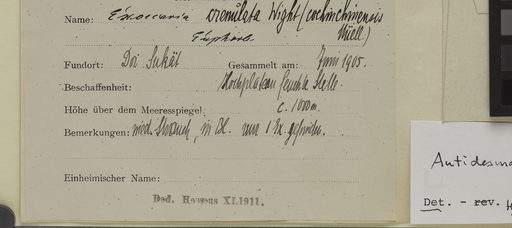 Name: Excoecaria crenulata Wight (cochinchinensis
Muell.)
Euphorb.
Fundort: Doi Sukät Gesammelt am: Juni 1905.
Beschaffenheit: Hochplateau feuchte Stelle
Höhe über dem Meeresspiegel: c. 1000 m.
Bemerkungen: nied. Strauch, in Bl. nur 1 Ex. gefunden.
Einheimischer Name:
Ded. Hosseus XI.1911.
Antidesma
Det. - rev.